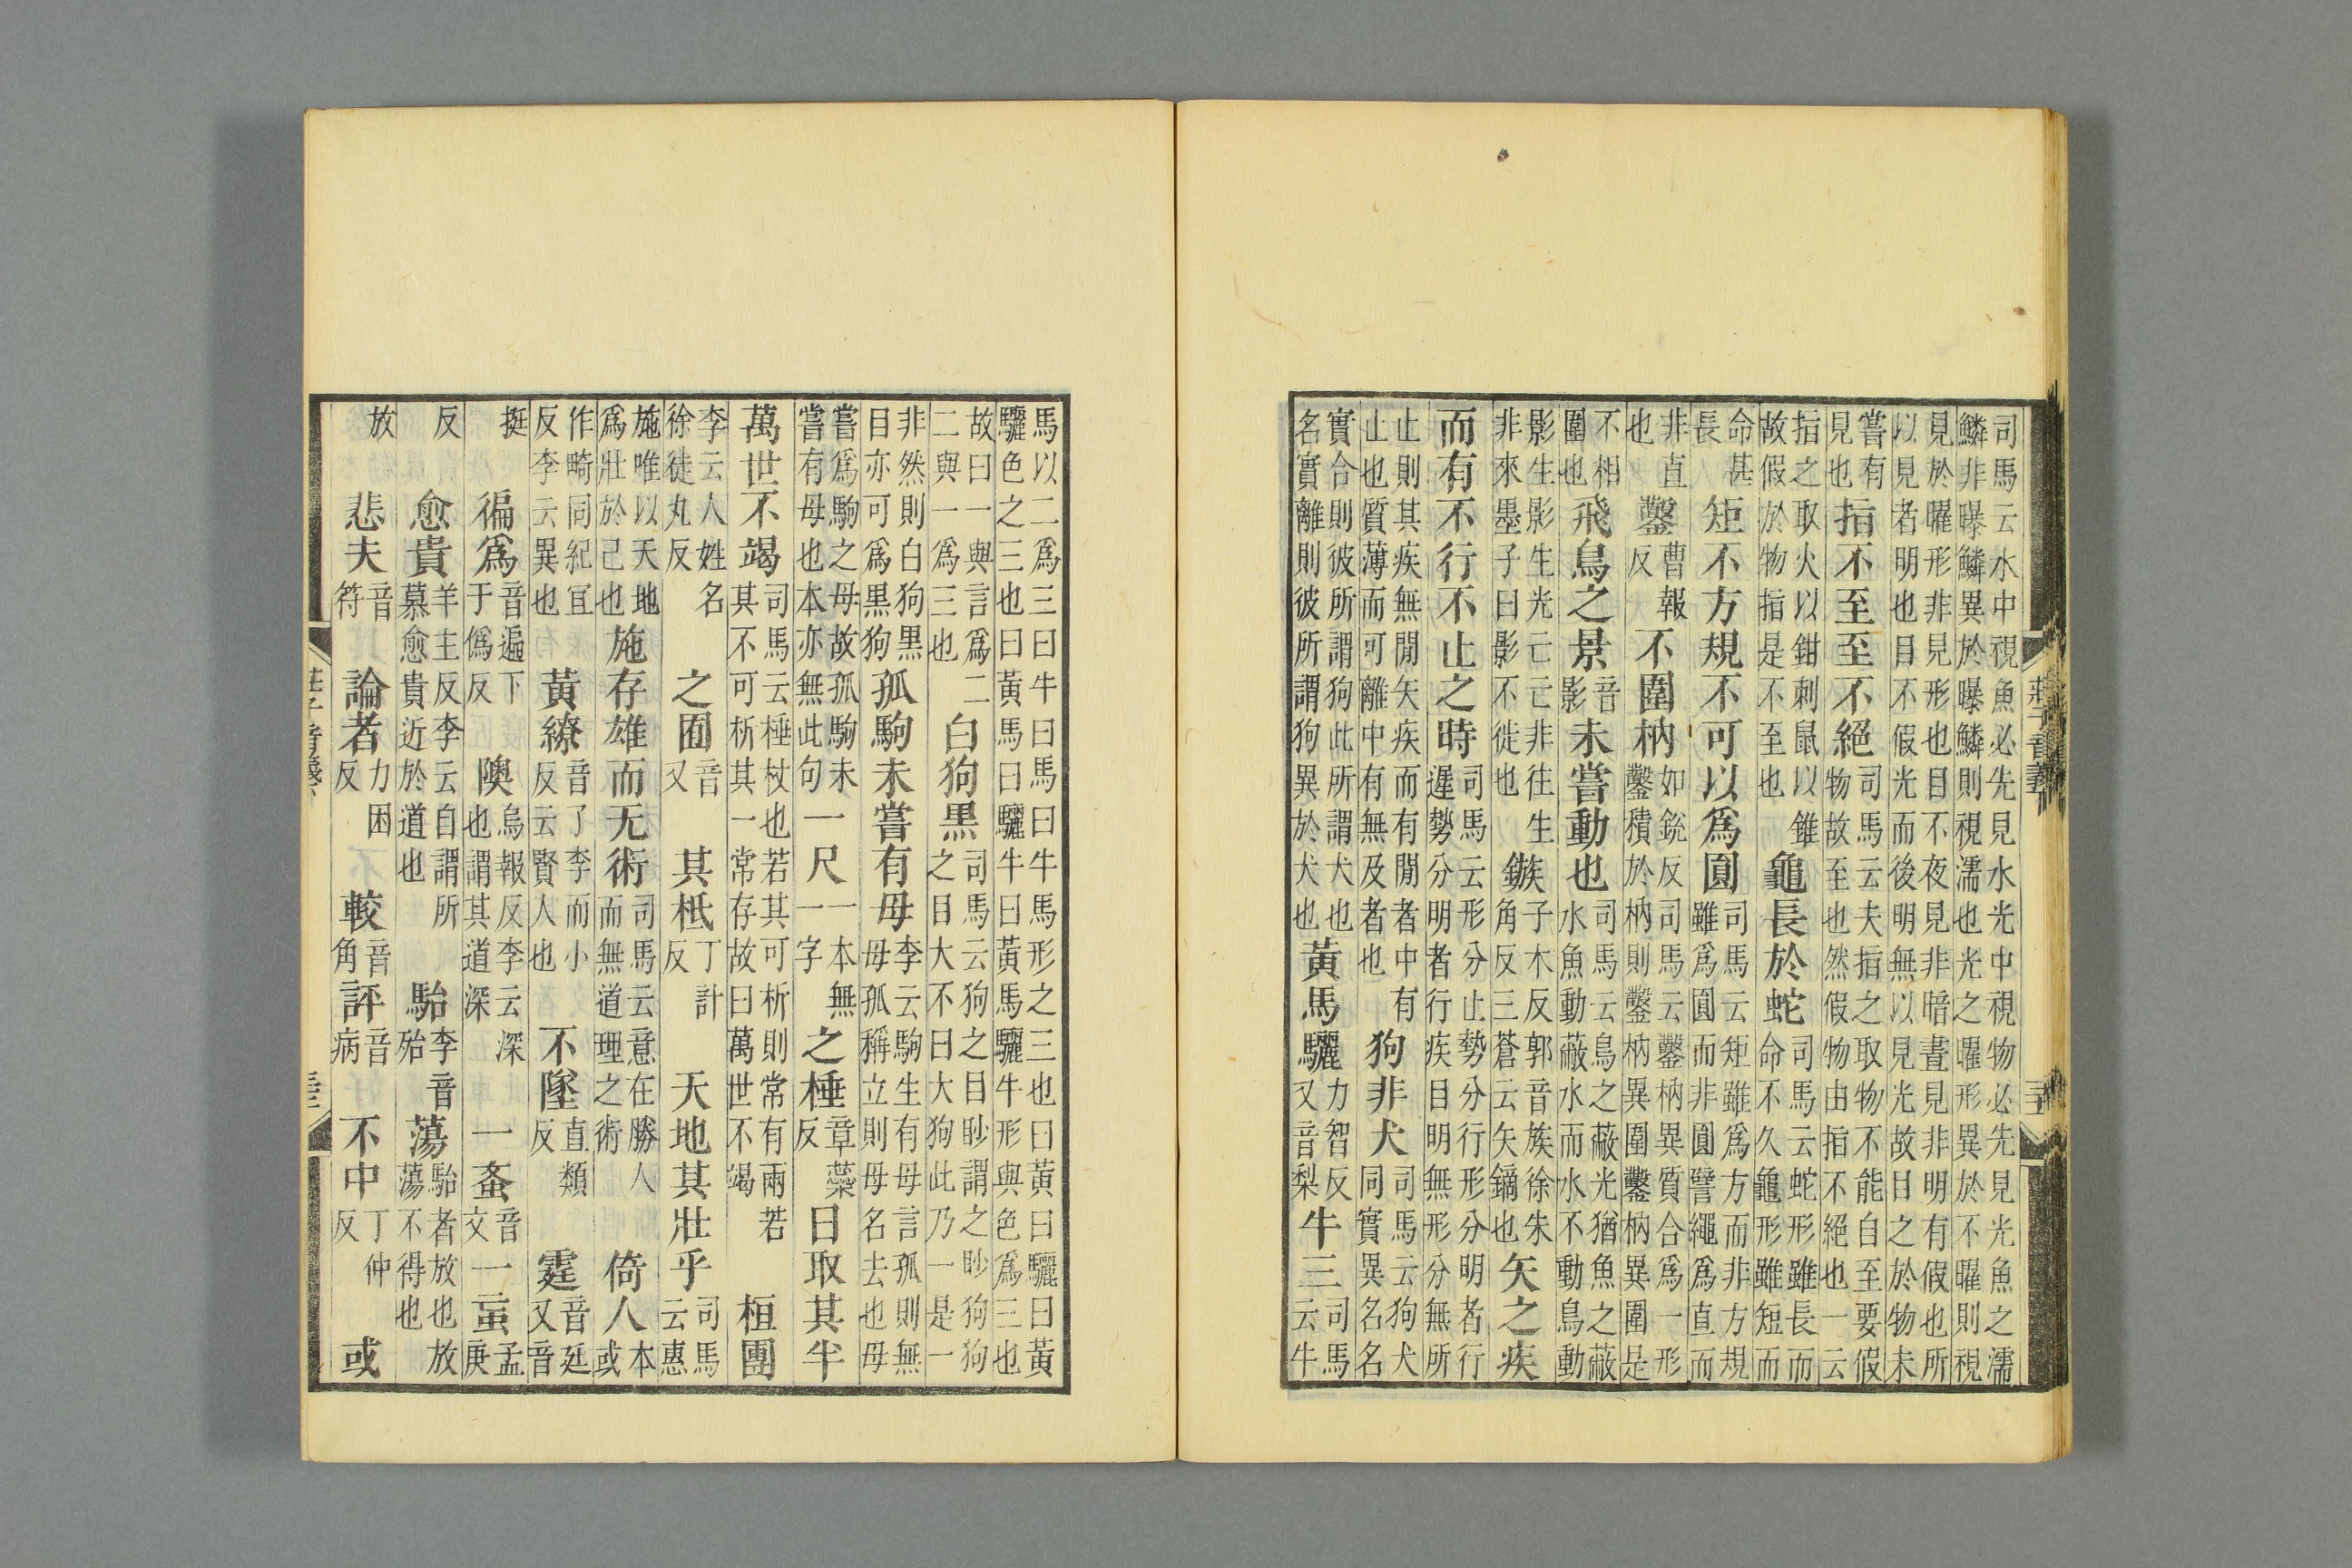 司馬云水中視魚必先見水光中視物必先見光魚之濡鱗非曝鱗異於曝鱗則視濡也光之曜形異於不曜則視
見於曜形非見形也目不夜見非暗晝見非明有假也所以見者明也目不假光而後明無以見光故目之於物未
嘗有見也指不至至不絕司馬云夫指之取物不能自至要假物故至也然假物由指不絕也一云
指之取火以鉗刺鼠以錐故假於物指是不至也龜長於蛇司馬云蛇形雖長而命不久龜形雖短而
命甚長矩不方規不可以爲圓司馬云矩雖爲方而非方規雖爲圓而非圓譬繩爲直而
非直也鑿曹報反不圍枘如銳反司馬云鑿枘異質合爲一形鑿積於枘則鑿枘異圍鑿枘異圍是
不相圍也飛鳥之景音影未嘗動也司馬云鳥之蔽光猶魚之蔽水魚動蔽水而水不動鳥動
影生影生光亡亡非往生非來墨子曰影不徙也鏃子木反郭音族徐朱角反三蒼云矢鏑也矢之疾
而有不行不止之時司馬云形分止勢分行形分明者行遲勢分明者行疾目明無形分無所
止則其疾無閒矢疾而有閒者中有止也質薄而可離中有無及者也狗非犬司馬云狗犬同實異名名
實合則彼所謂狗此所謂犬也名實離則彼所謂狗異於犬也黃馬驪力智反又音梨牛三司馬云牛
莊子音義下
馬以二爲三曰牛曰馬曰牛馬形之三也曰黃曰驪曰黃驪色之三也曰黃馬曰驪牛曰黃馬驪牛形與色爲三也
故曰一與言爲二二與一爲三也白狗黑司馬云狗之目眇謂之眇狗狗之目大不曰大狗此乃一是一
非然則白狗黑目亦可爲黑狗孤駒未嘗有母李云駒生有母言孤則無母孤稱立則母名去也母
嘗爲駒之母故孤駒未嘗有母也本亦無此句一尺一本無一字之棰章蘂反日取其半
萬世不竭司馬云棰杖也若其可析則常有兩若其不可析其一常存故曰萬世不竭桓團
李云人姓名徐徒丸反之囿音又其柢丁計反天地其壯乎司馬云惠
施唯以天地爲壯於己也施存雄而无術司馬云意在勝人而無道理之術倚人本或
作畸同紀宜反李云異也黃繚音了李而小反云賢人也不墜直類反霆音延又音
挺徧爲音遍下于僞反隩烏報反李云深也謂其道深一蚉音文一䖟孟庚
反愈貴羊主反李云自謂所慕愈貴近於道也駘李音殆蕩駘者放也放蕩不得也
放悲夫音符論者力困反較音角評音病不中丁仲反或